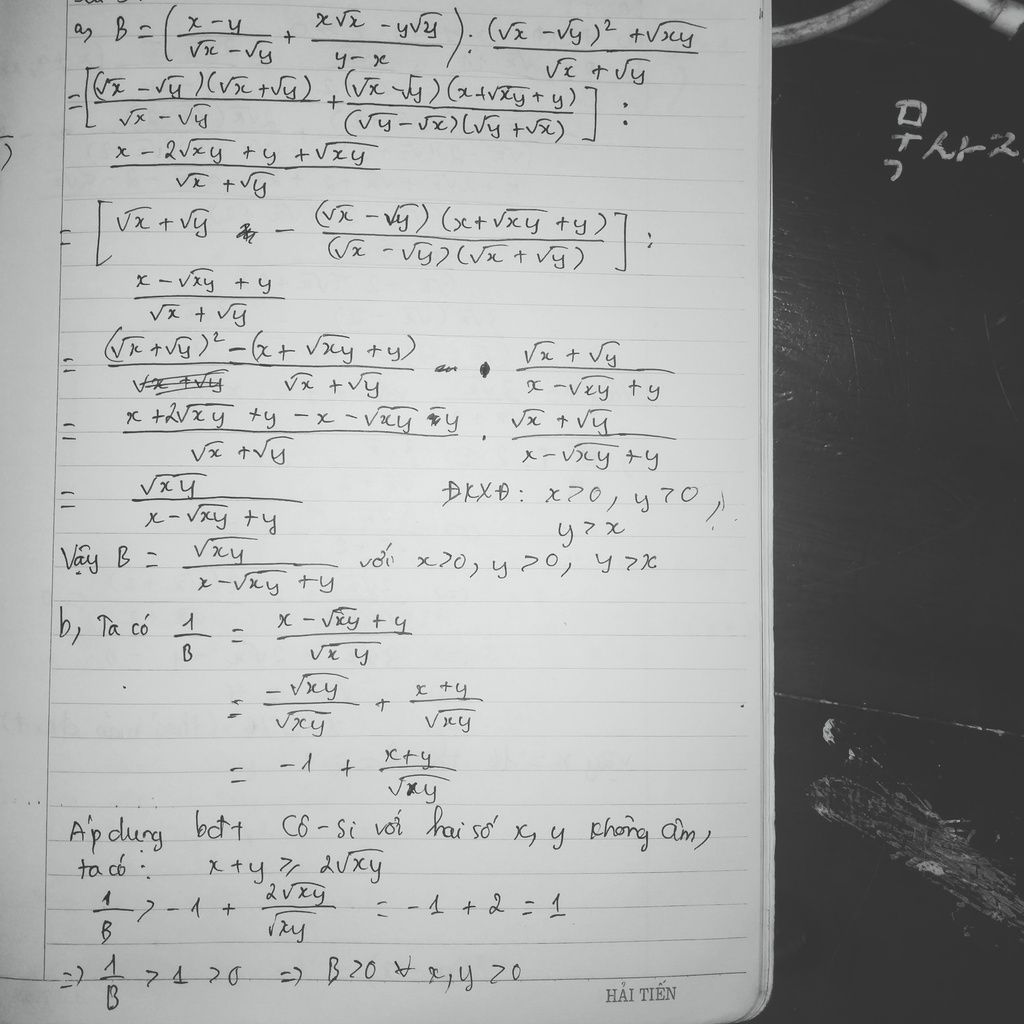 a, B = ( (x - y)/(√x - √y) + (x√x - y√y)/(y - x) ) : ((√x - √y)² + √xy)/(√x + √y)
= [ ((√x - √y)(√x + √y))/(√x - √y) + ((√x - √y)(x + √xy + y))/((√y - √x)(√y + √x)) ] :
(x - 2√xy + y + √xy)/(√x + √y)
= [ √x + √y - ((√x - √y)(x + √xy + y))/((√x - √y)(√x + √y)) ] :
(x - √xy + y)/(√x + √y)
= ((√x + √y)² - (x + √xy + y))/(√x + √y) · (√x + √y)/(x - √xy + y)
= (x + 2√xy + y - x - √xy - y)/(√x + √y) · (√x + √y)/(x - √xy + y)
= √xy/(x - √xy + y) ĐKXĐ: x > 0, y > 0,
y > x
Vậy B = √xy/(x - √xy + y) với x > 0, y > 0, y > x
b, Ta có 1/B = (x - √xy + y)/√xy
= -√xy/√xy + (x + y)/√xy
= -1 + (x + y)/√xy
Áp dụng bđt Cô-si với hai số x, y không âm,
ta có: x + y ≥ 2√xy
1/B > -1 + 2√xy/√xy = -1 + 2 = 1
=> 1/B > 1 > 0 => B > 0 ∀ x, y > 0
HẢI TIẾN